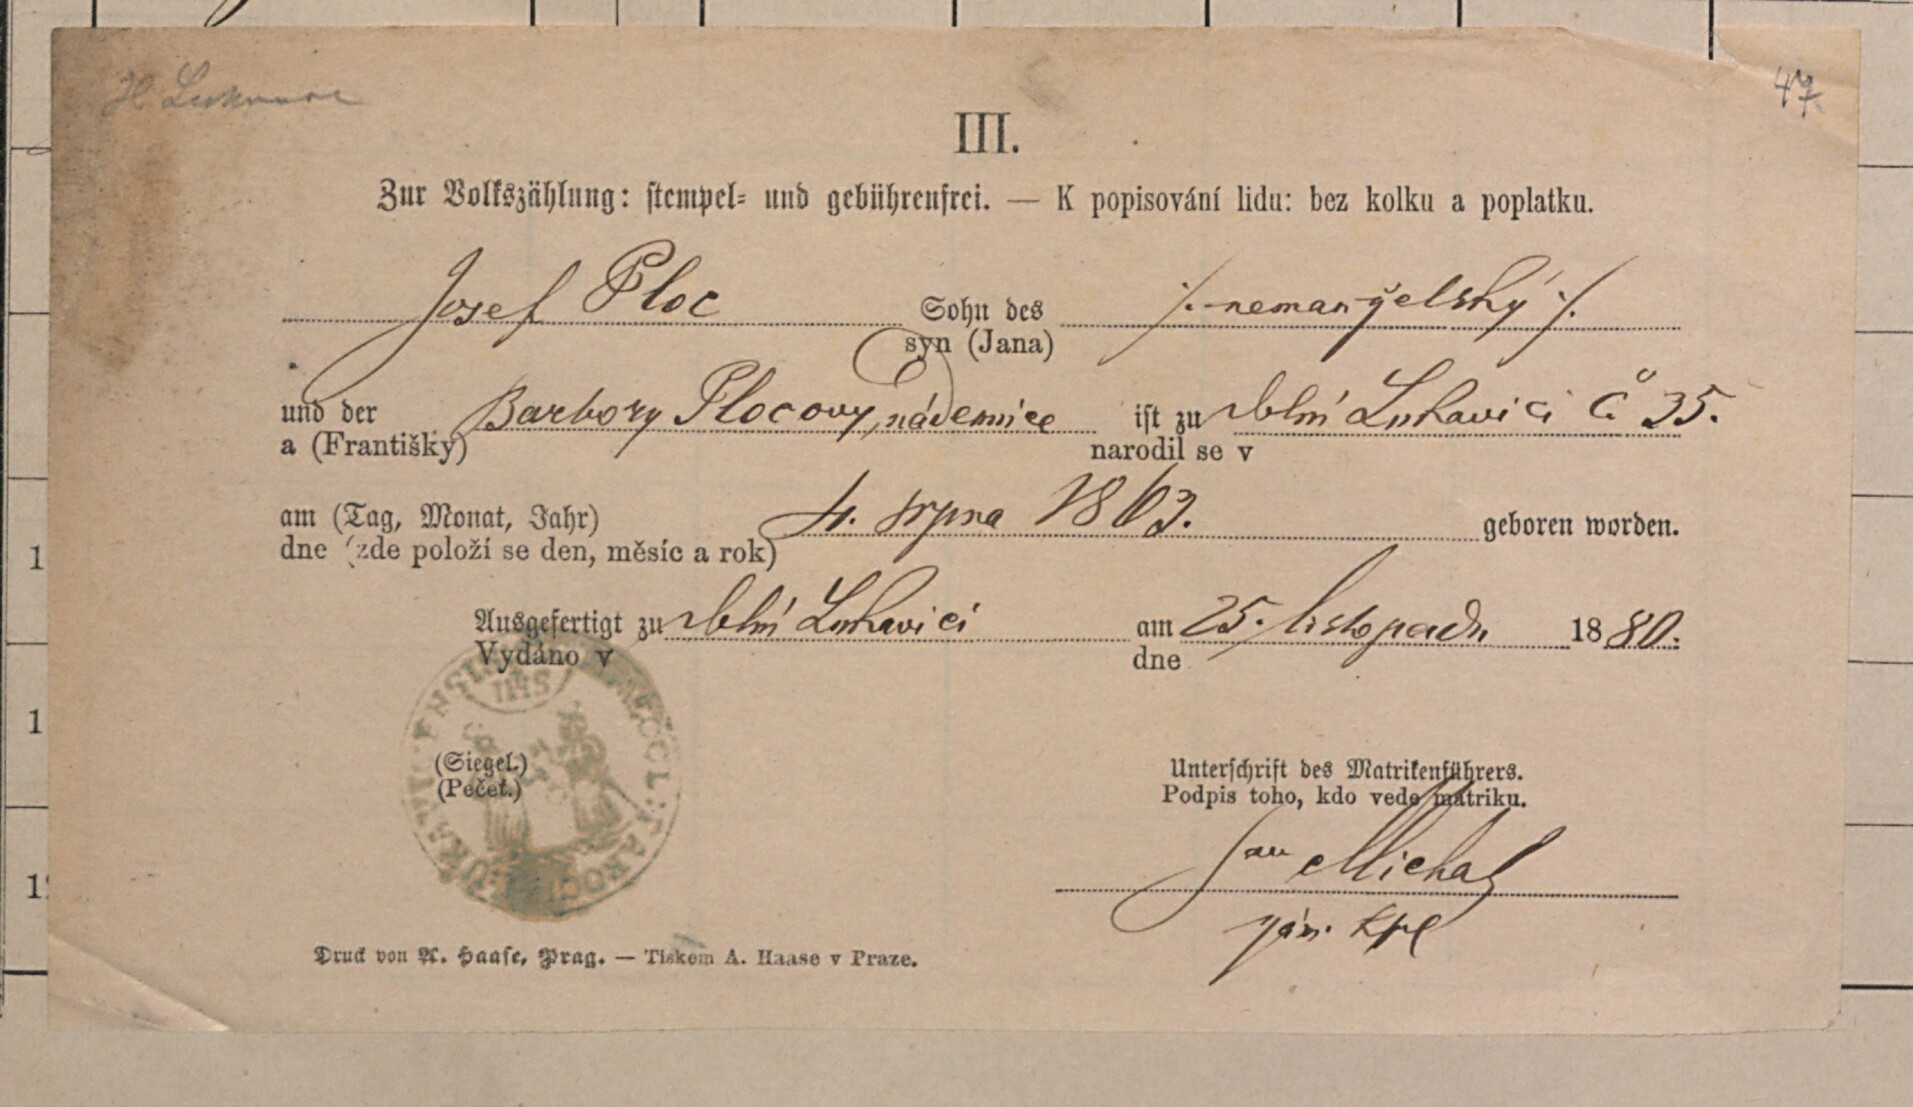 47.
III.
Zur Volkszählung: stempel- und gebührenfrei. — K popisování lidu: bez kolku a poplatku.
Josef Ploc Sohn des /. nemanželský /.
syn (Jana)
und der Barbory Plocovy, nádennice ist zu Dolní Lukavici č 35.
a (Františky) narodil se v
am (Tag, Monat, Jahr) 4. srpna 1863. geboren worden.
dne (zde položí se den, měsíc a rok)
Ausgefertigt zu Dolní Lukavici am 25. listopadu 1880.
Vydáno v dne
(Siegel.)
(Pečeť.)
Unterschrift des Matrikenführers.
Podpis toho, kdo vede matriku.
Jan Michal
Druck von A. Haase, Prag. — Tiskem A. Haase v Praze.